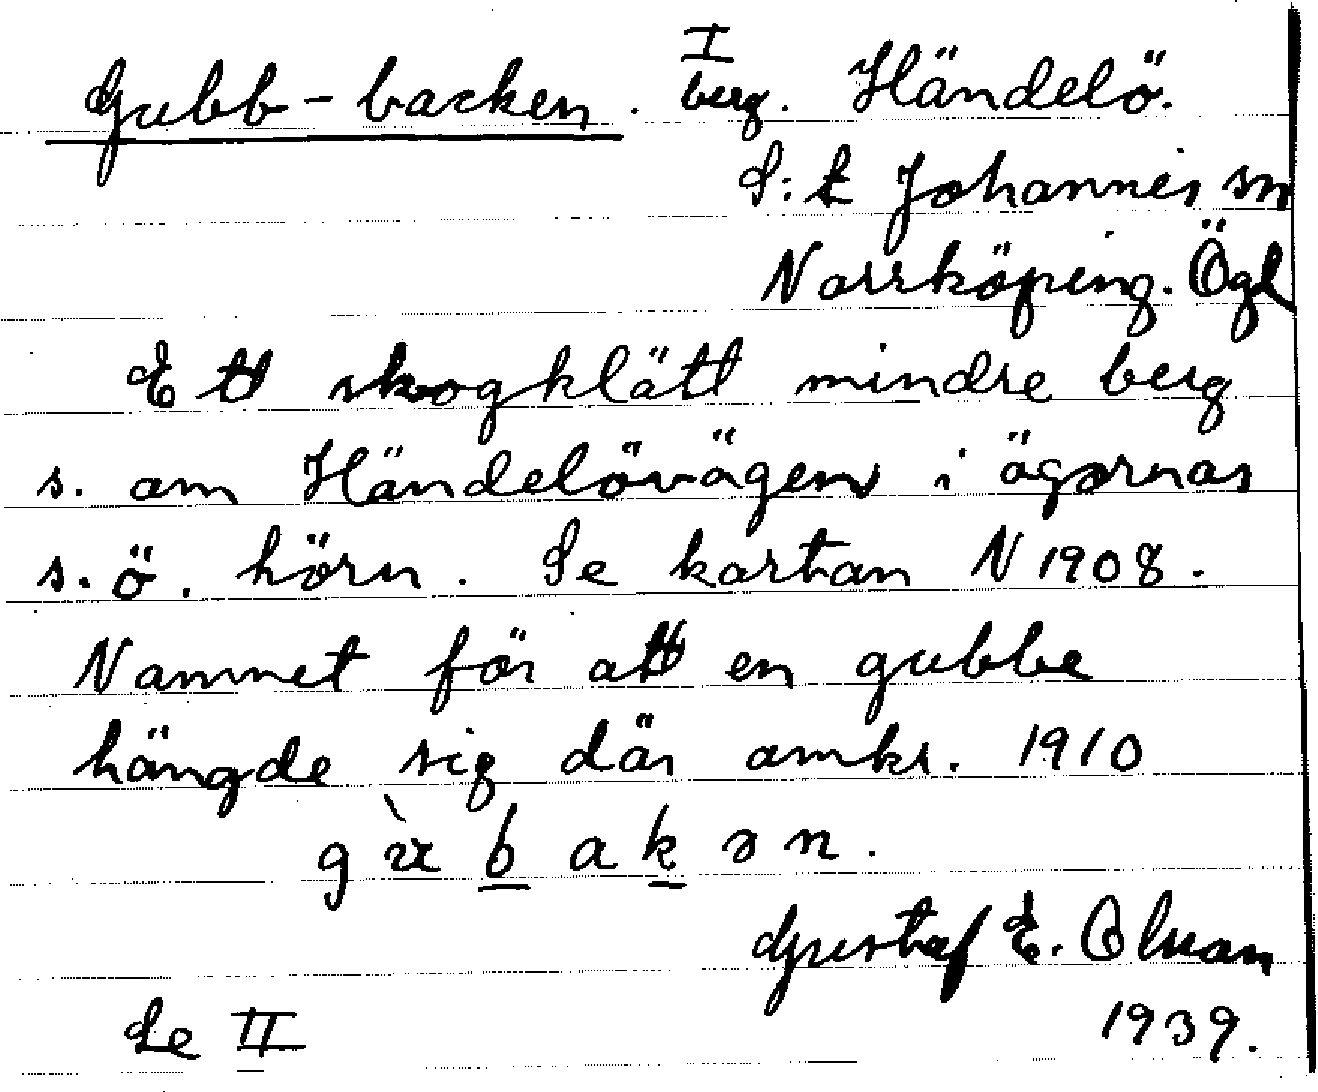 I
Gubb-backen. berg. Händelö.
S:t Johannes sn
Norrköping. Ögl
Ett skogklätt mindre berg
s. om Händelövägen i ägornas
s.ö. hörn. Se kartan N 1908.
Namnet för att en gubbe
hängde sig där omkr. 1910
Gustaf E. Olsson
Se II 1939.